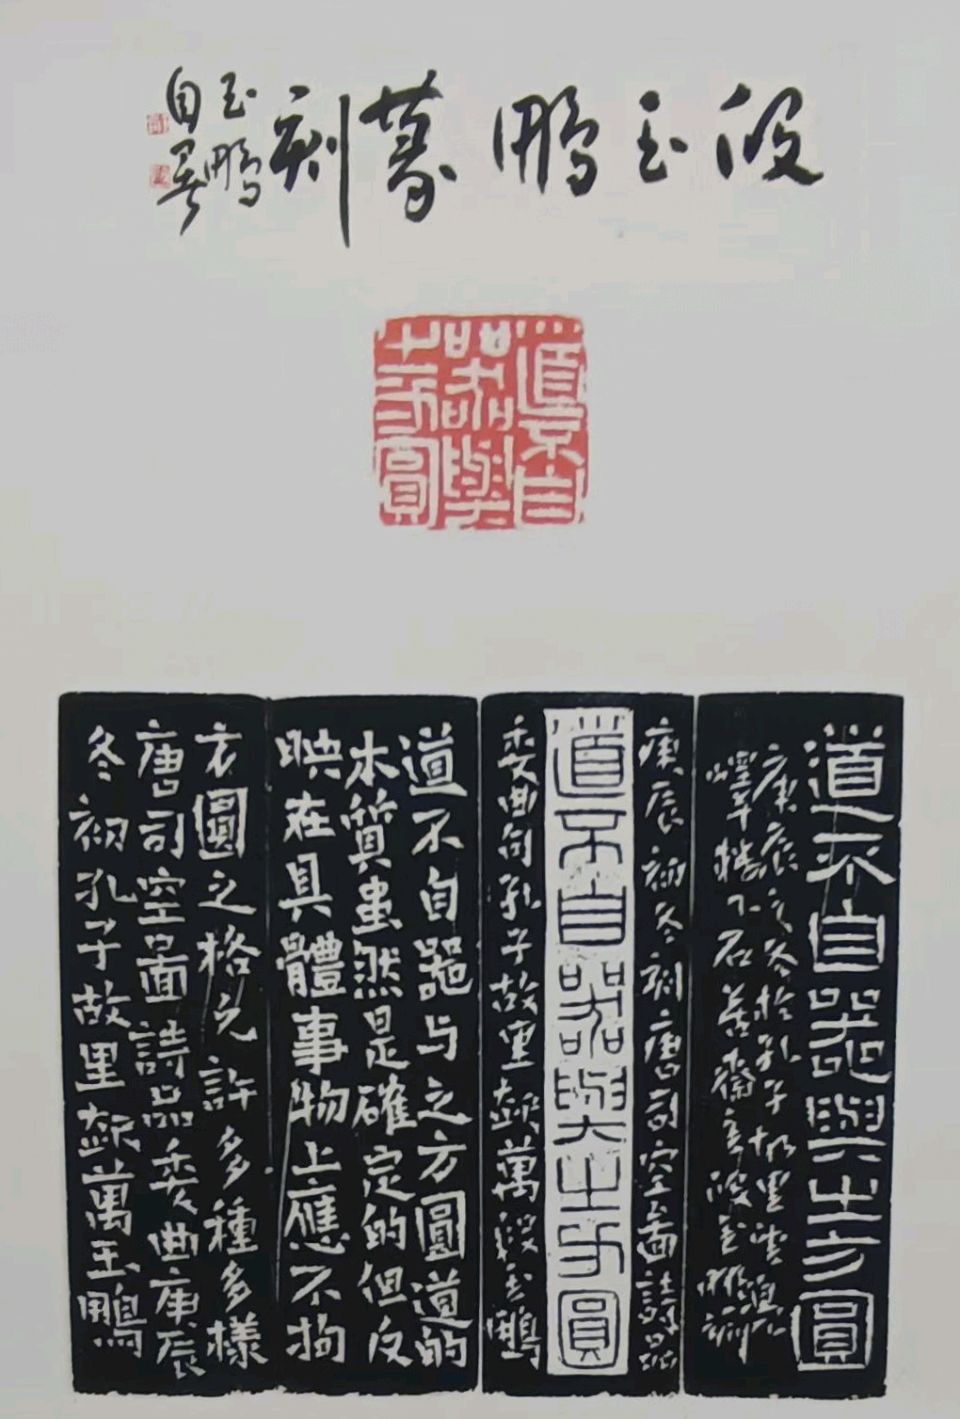 段玉鵬篆刻
玉鵬
自署
道不自
器與
之方圓
道不自器與之方圓
庚辰之冬於孔子故里
石善齋主段玉鵬刻
庚辰初冬刻唐司空圖詩品
道不自器與之方圓
委曲句孔子故里萬段玉鵬
道不自器与之方圓道的
本質虽然是確定的但反
映在具體事物上應不拘
方圓之格允許多種多樣
唐司空圖詩品委曲庚辰
冬初孔子故里萬玉鵬